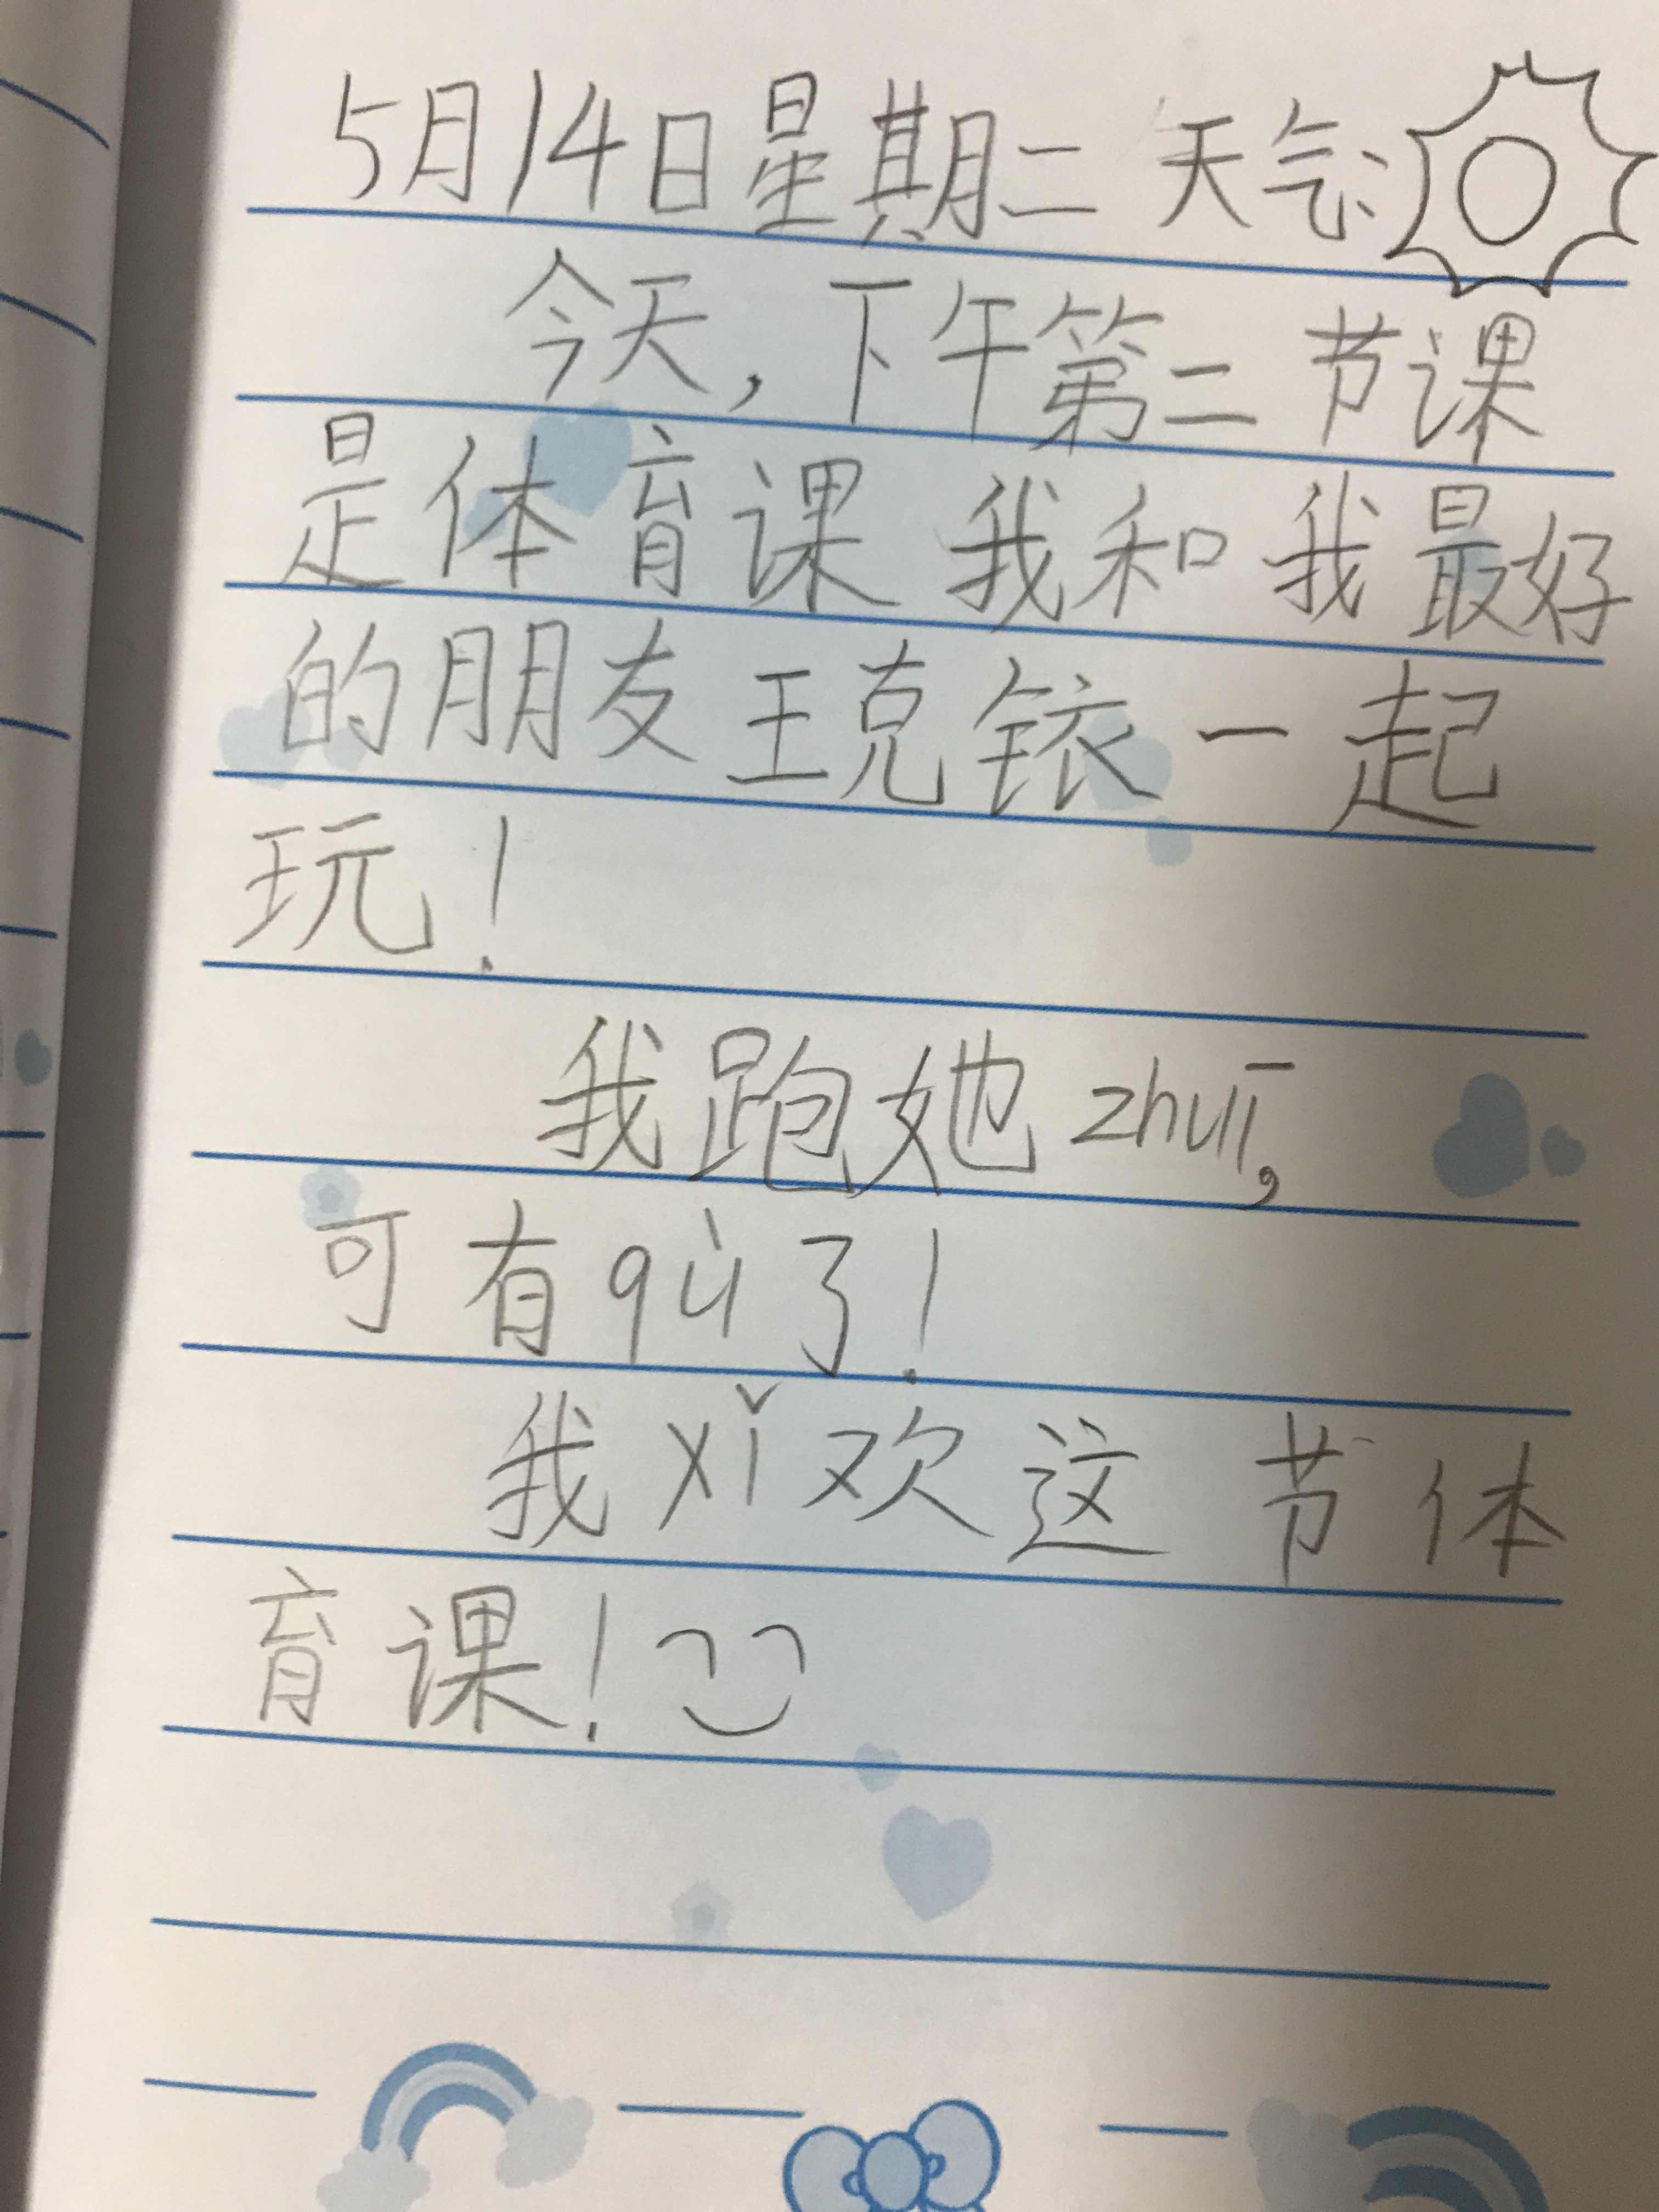 5月14日星期二 天气:
今天，下午第二节课
是体育课 我和我最好
的朋友王克铱一起
玩！
我跑她zhuī，
可有qù了！
我xǐ欢这节体
育课！